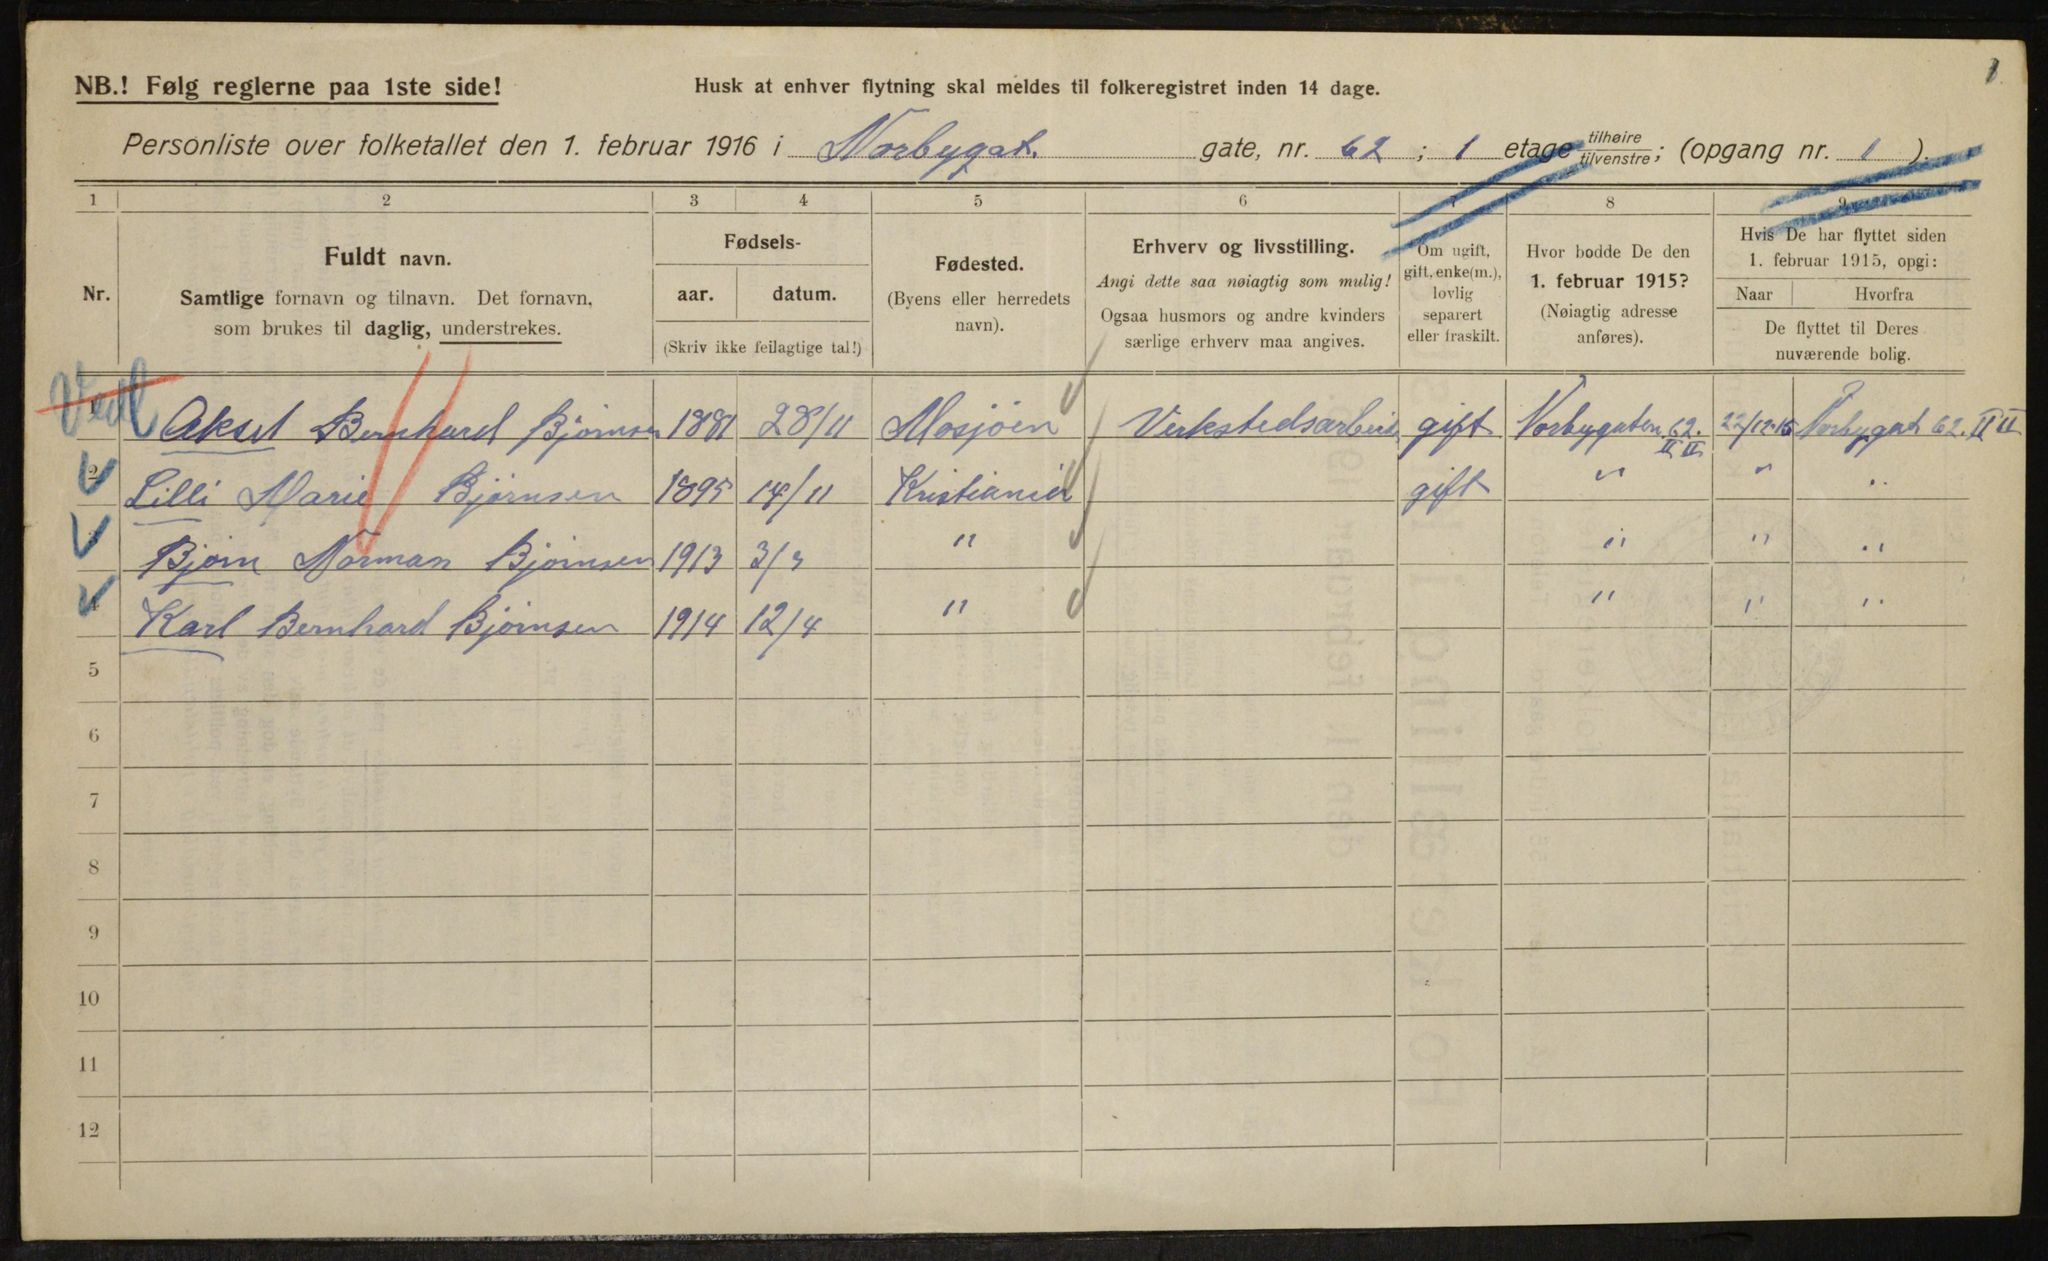 NB.! Følg reglerne paa 1ste side!
Husk at enhver flytning skal meldes til folkeregistret inden 14 dage.
Personliste over folketallet den 1. februar 1916 i Norbygat. gate, nr. 62 ; 1 etage tilhøire/tilvenstre; (opgang nr. 1 ).
1 2 3 4 5 6 7 8 9
Nr.
Fuldt navn.
Samtlige fornavn og tilnavn. Det fornavn,
som brukes til daglig, understrekes.
Fødsels-
aar. datum.
(Skriv ikke feilagtige tal!)
Fødested.
(Byens eller herredets
navn).
Erhverv og livsstilling.
Angi dette saa nøiagtig som mulig!
Ogsaa husmors og andre kvinders
særlige erhverv maa angives.
Om ugift,
gift, enke(m.),
lovlig
separert
eller fraskilt.
Hvor bodde De den
1. februar 1915?
(Nøiagtig adresse
anføres).
Hvis De har flyttet siden
1. februar 1915, opgi:
Naar Hvorfra
De flyttet til Deres
nuværende bolig.
1 Aksel Bernhard Bjørnsen 1881 28/11 Mosjöen Verkstedsarbeid gift Norbygaten 62. II II 22/12-15 Norbygat 62. II II
2 Lilli Marie Bjørnsen 1895 14/11 Kristiania gift " " "
3 Bjørn Norman Bjørnsen 1913 3/3 " " " "
4 Karl Bernhard Bjørnsen 1914 12/4 " " " "
5
6
7
8
9
10
11
12